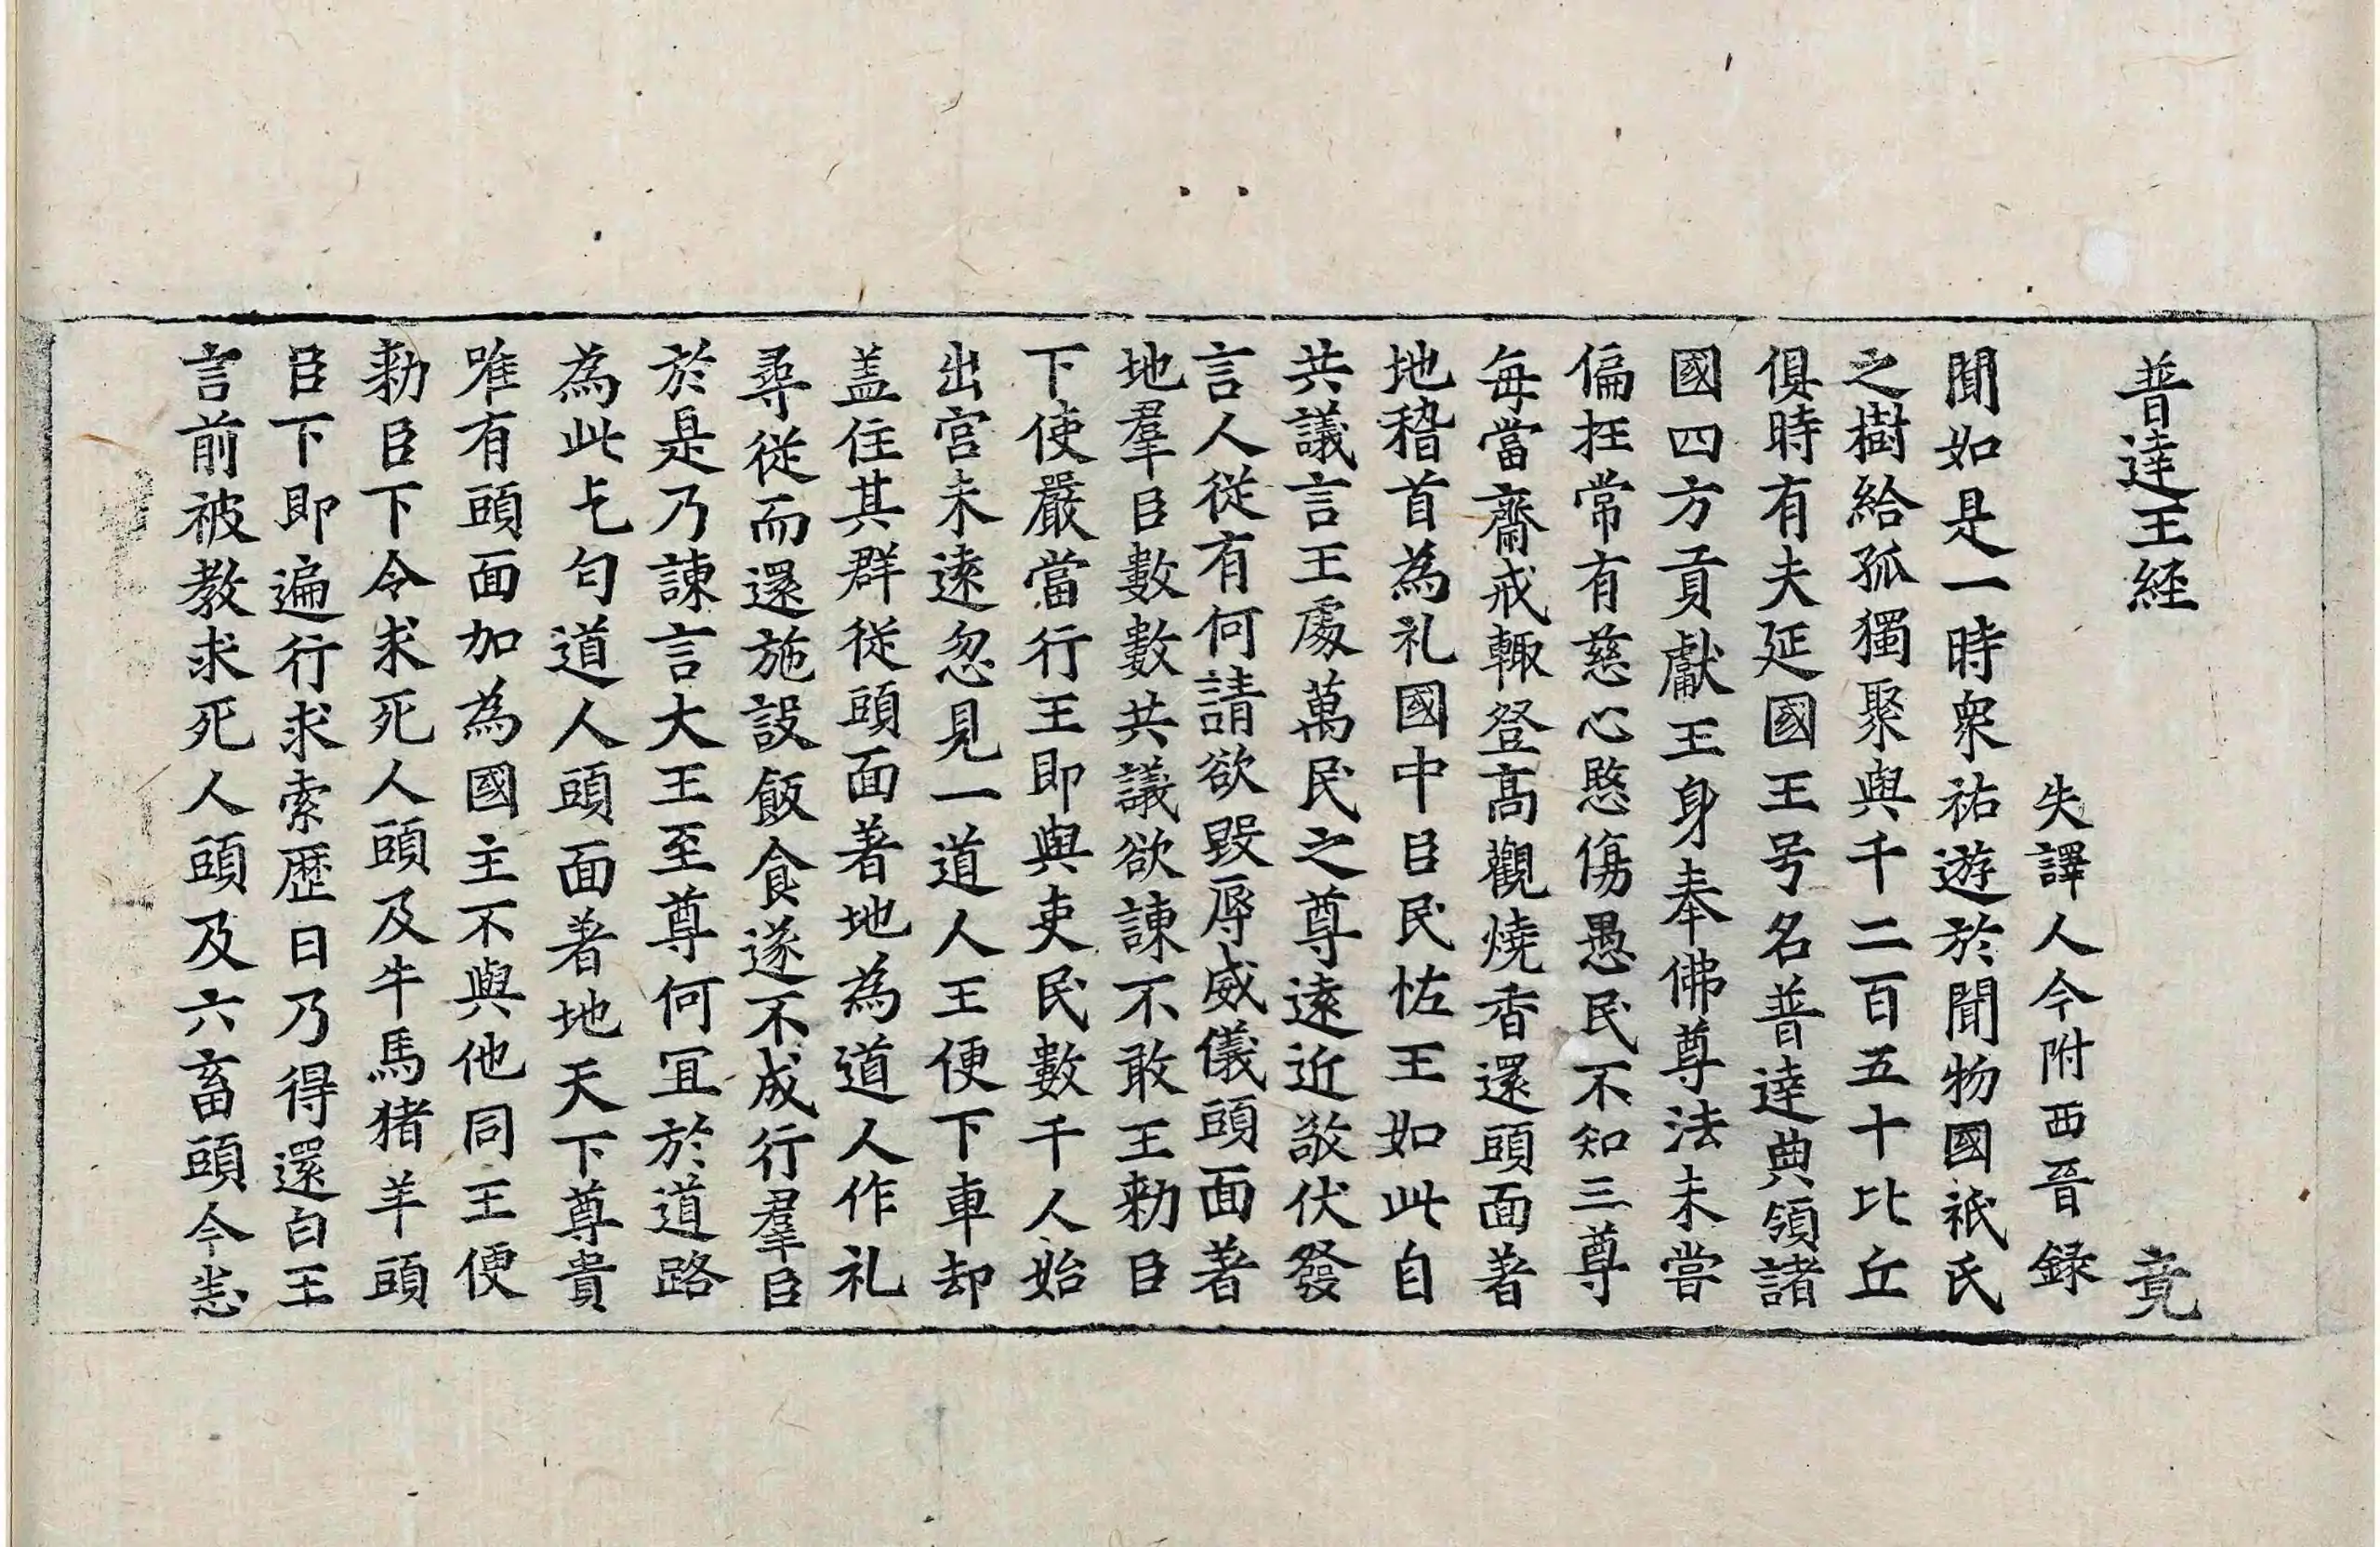 普達王経　竟
失譯人今附西晉録
聞如是一時衆祐遊於聞物國祇氏
之樹給孤獨聚與千二百五十比丘
俱時有夫延國王号名普達典領諸
國四方貢獻王身奉佛尊法未嘗
偏抂常有慈心愍傷愚民不知三尊
每當齋戒輙登髙觀燒香還頭面著
地稽首為礼國中臣民恠王如此自
共議言王處萬民之尊遠近敬伏發
言人從有何請欲毀辱威儀頭面著
地羣臣數數共議欲諫不敢王勑臣
下使嚴當行王即與吏民數千人始
出宫未逺忽見一道人王便下車却
盖住其群從頭面著地為道人作礼
尋從而還施設飯食遂不成行羣臣
於是乃諫言大王至尊何冝於道路
為此乞匄道人頭面著地天下尊貴
唯有頭面加為國主不與他同王便
勑臣下令求死人頭及牛馬猪羊頭
臣下即遍行求索歴日乃得還白王
言前被教求死人頭及六畜頭今悉